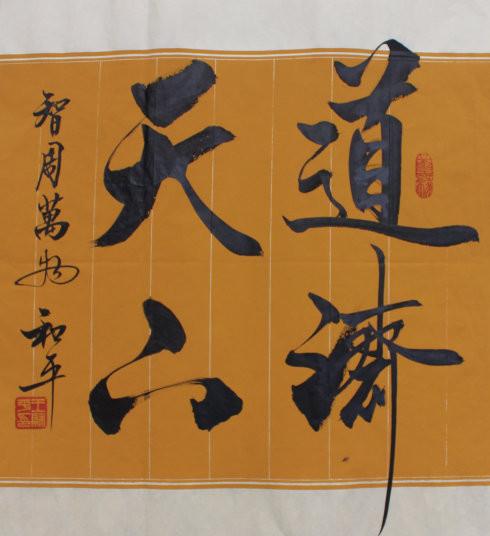 道濟
天下
智周萬物 和平